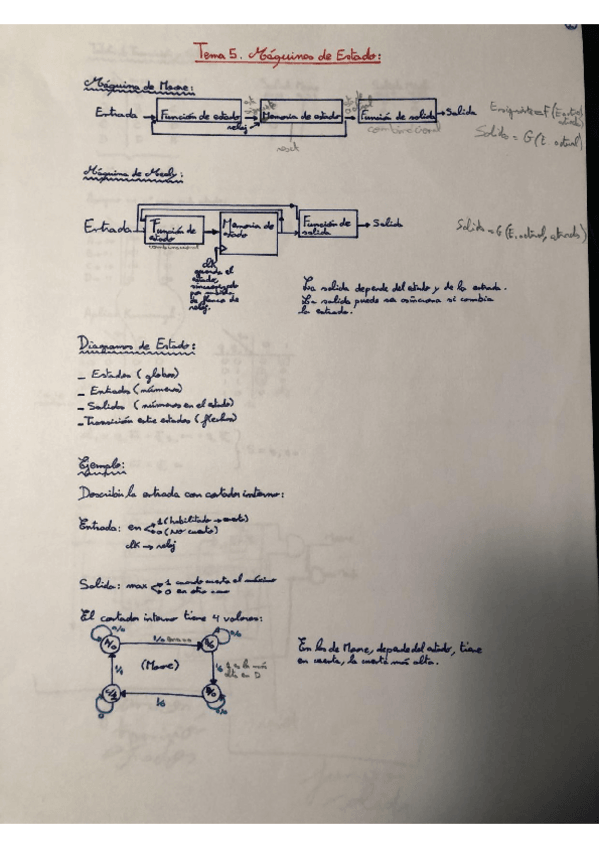 Tema 5. Máquinas de Estado:
Máquina de Moore:
Entrada
Función de estado
Memoria de estado
Función de salida
Salida
reloj
combinacional
reset
Salida = G(E. actual)
Máquina de Mealy:
Entrada
Función de estado
Memoria de estado
Función de salida
Salida
combinacional
Salida = G(E. actual, entradas)
clk
La salida depende del estado y de la entrada.
La salida puede ser asíncrona si cambia
la entrada.
Diagramas de Estado:
_ Estados (globos)
_ Entradas (números)
_ Salidas (números en el estado)
_ Transición entre estados (flechas)
Ejemplo:
Describir la entrada con contador interno:
Entrada: en 1 (habilitado → cuenta)
0 (no cuenta)
clk → reloj
Salida: max 1 cuando cuenta el máximo
0 en otro caso
El contador interno tiene 4 valores:
(Moore)
En los de Moore, depende del estado, tiene
en cuenta, la cuenta más alta.